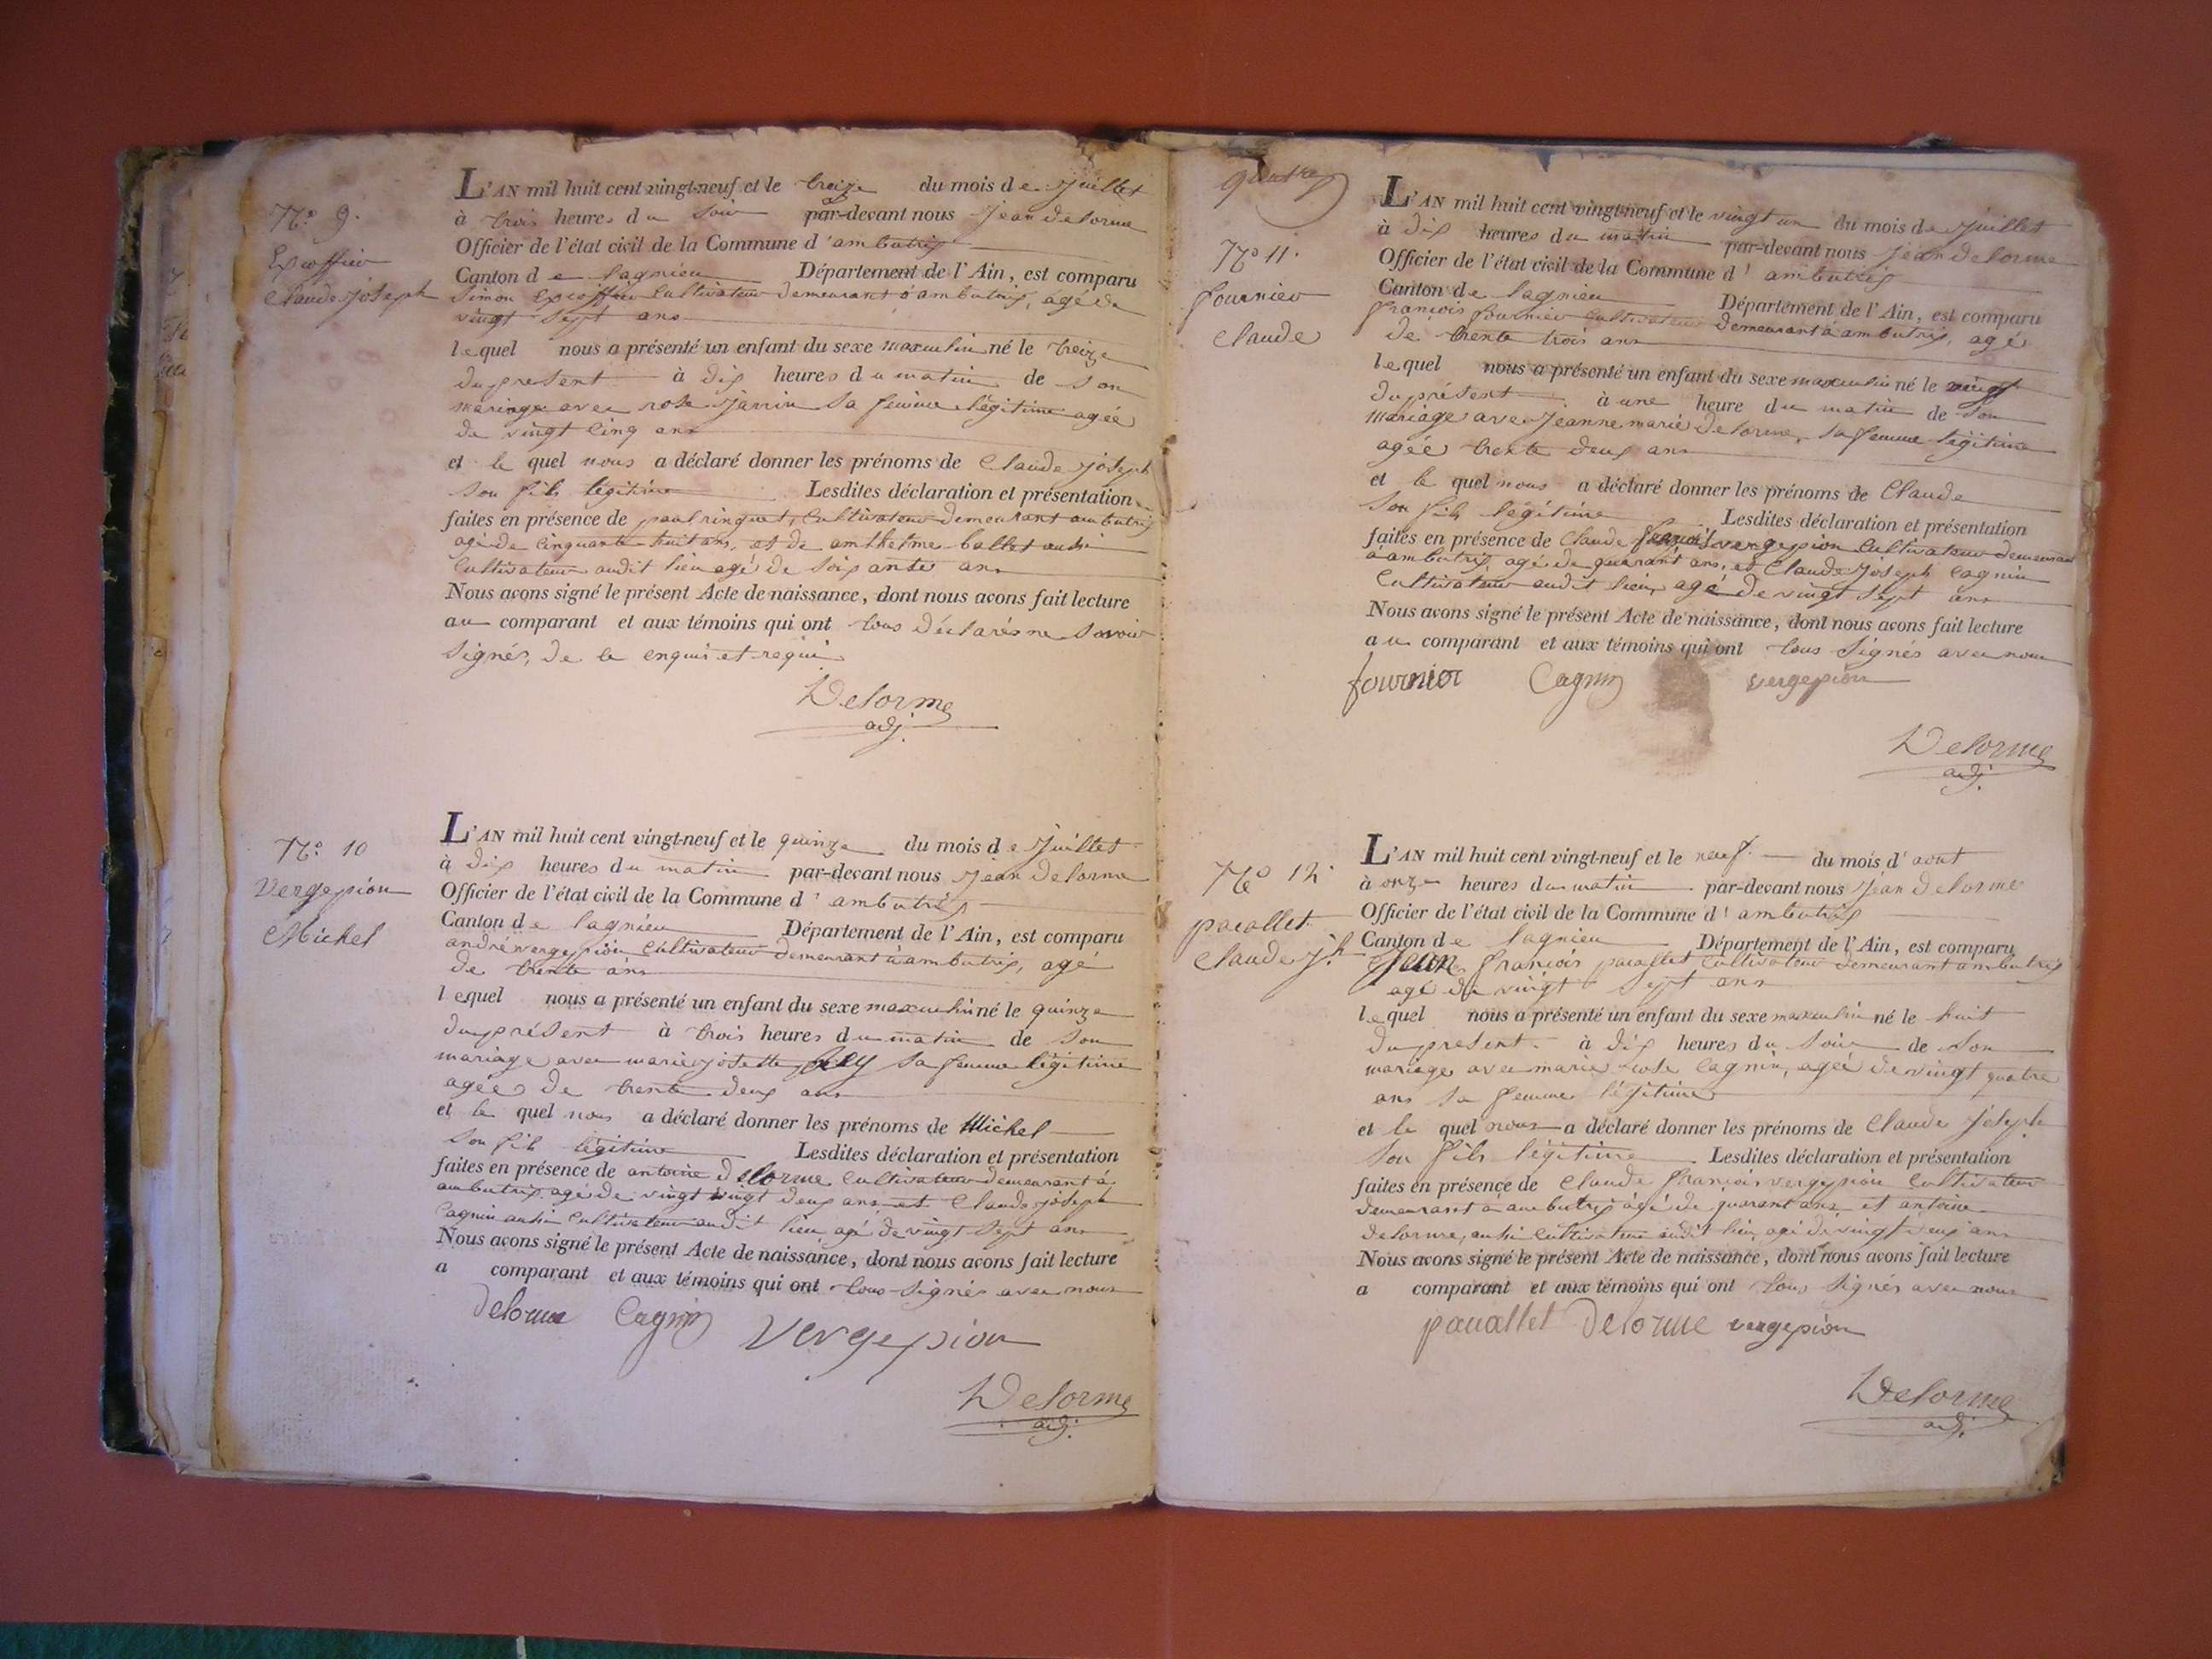 N.o 9.
Claude joseph
L'AN mil huit cent vingt-neuf et le treize du mois de juillet
à trois heures du soir par-devant nous jean delorme
Officier de l'état civil de la Commune d'ambutrix
Canton de lagnieu Département de l'Ain, est comparu
Simon cultivateur demeurant à ambutrix, agé de
vingt sept ans
lequel nous a présenté un enfant du sexe masculin né le treize
du present à dix heures du matin de son
mariage avec rose jannin sa femme légitime agée
de vingt cinq ans
et le quel nous a déclaré donner les prénoms de Claude joseph
son fils légitime Lesdites déclaration et présentation
faites en présence de paul ringuet, cultivateur demeurant ambutrix
agé de cinquante huit ans, et de anthelme ballet aussi
cultivateur audit lieu agé de soixante ans
Nous avons signé le présent Acte de naissance, dont nous avons fait lecture
au comparant et aux témoins qui ont tous déclarés ne savoir
signés, de ce enquis et requis
Delorme
adj.
N.o 10
vergepion
Michel
L'AN mil huit cent vingt-neuf et le quinze du mois de juillet
à dix heures du matin par-devant nous jean delorme
Officier de l'état civil de la Commune d'ambutrix
Canton de lagnieu Département de l'Ain, est comparu
andré vergepion cultivateur demeurant à ambutrix, agé
de trente ans
lequel nous a présenté un enfant du sexe masculin né le quinze
du présent à trois heures du matin de son
mariage avec marie josette sa femme légitime
agée de trente deux ans
et le quel nous a déclaré donner les prénoms de Michel
son fils légitime Lesdites déclaration et présentation
faites en présence de antoine delorme cultivateur demeurant à
ambutrix agé de vingt vingt deux ans et Claude joseph
Cagnin aussi cultivateur audit lieu, agé de vingt sept ans
Nous avons signé le présent Acte de naissance, dont nous avons fait lecture
a comparant et aux témoins qui ont tous signés avec nous
delorme Cagnin vergepion
Delorme
adj.
quatre
N.o 11.
fournier
claude
L'AN mil huit cent vingt-neuf et le vingt un du mois de juillet
à dix heures du matin par-devant nous jean delorme
Officier de l'état civil de la Commune d'ambutrix
Canton de lagnieu Département de l'Ain, est comparu
françois fournier cultivateur demeurant à ambutrix, agé
de trente trois ans
lequel nous a présenté un enfant du sexe masculin né le vingt
du présent à une heure du matin de son
mariage avec jeanne marie delorme, sa femme légitime
agée trente deux ans
et le quel nous a déclaré donner les prénoms de Claude
son fils légitime Lesdites déclaration et présentation
faites en présence de Claude françois vergepion cultivateur demeurant
a ambutrix, agé de quarant ans, et Claude joseph cagnin
cultivateur audit lieu, agé de vingt sept ans
Nous avons signé le présent Acte de naissance, dont nous avons fait lecture
au comparant et aux témoins qui ont tous signés avec nous
fournier Cagnin vergepion
Delorme
adj.
N.o 12.
pacallet
claude jh
L'AN mil huit cent vingt-neuf et le neuf du mois d'aout
à onze heures du matin par-devant nous jean delorme
Officier de l'état civil de la Commune d'ambutrix
Canton de lagnieu Département de l'Ain, est comparu
Jean françois pacallet cultivateur demeurant ambutrix
agé de vingt sept ans
lequel nous a présenté un enfant du sexe masculin né le huit
du present à dix heures du soir de son
mariage avec marie rose cagnin, agée de vingt quatre
ans sa femme légitime
et le quel nous a déclaré donner les prénoms de Claude joseph
son fils légitime Lesdites déclaration et présentation
faites en présence de Claude françois vergepion cultivateur
demeurant a ambutrix agé de quarant ans et antoine
delorme, aussi cultivateur audit lieu, agé de vingt deux ans
Nous avons signé le présent Acte de naissance, dont nous avons fait lecture
a comparant et aux témoins qui ont tous signés avec nous
pacallet delorme vergepion
Delorme
adj.